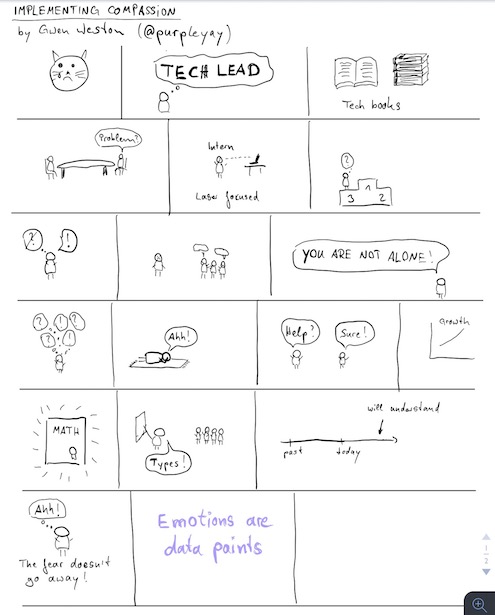 IMPLEMENTING COMPASSION
by Gwen Weston (@purpleyay)
TECH LEAD
Tech books
Problem?
Intern
Laser focused
?
1
3 2
? !
YOU ARE NOT ALONE!
? ! ?
? !
Ahh!
Help? Sure!
Growth
MATH
Types!
will understand
past today
Ahh!
The fear doesn't
go away!
Emotions are
data points
1
2